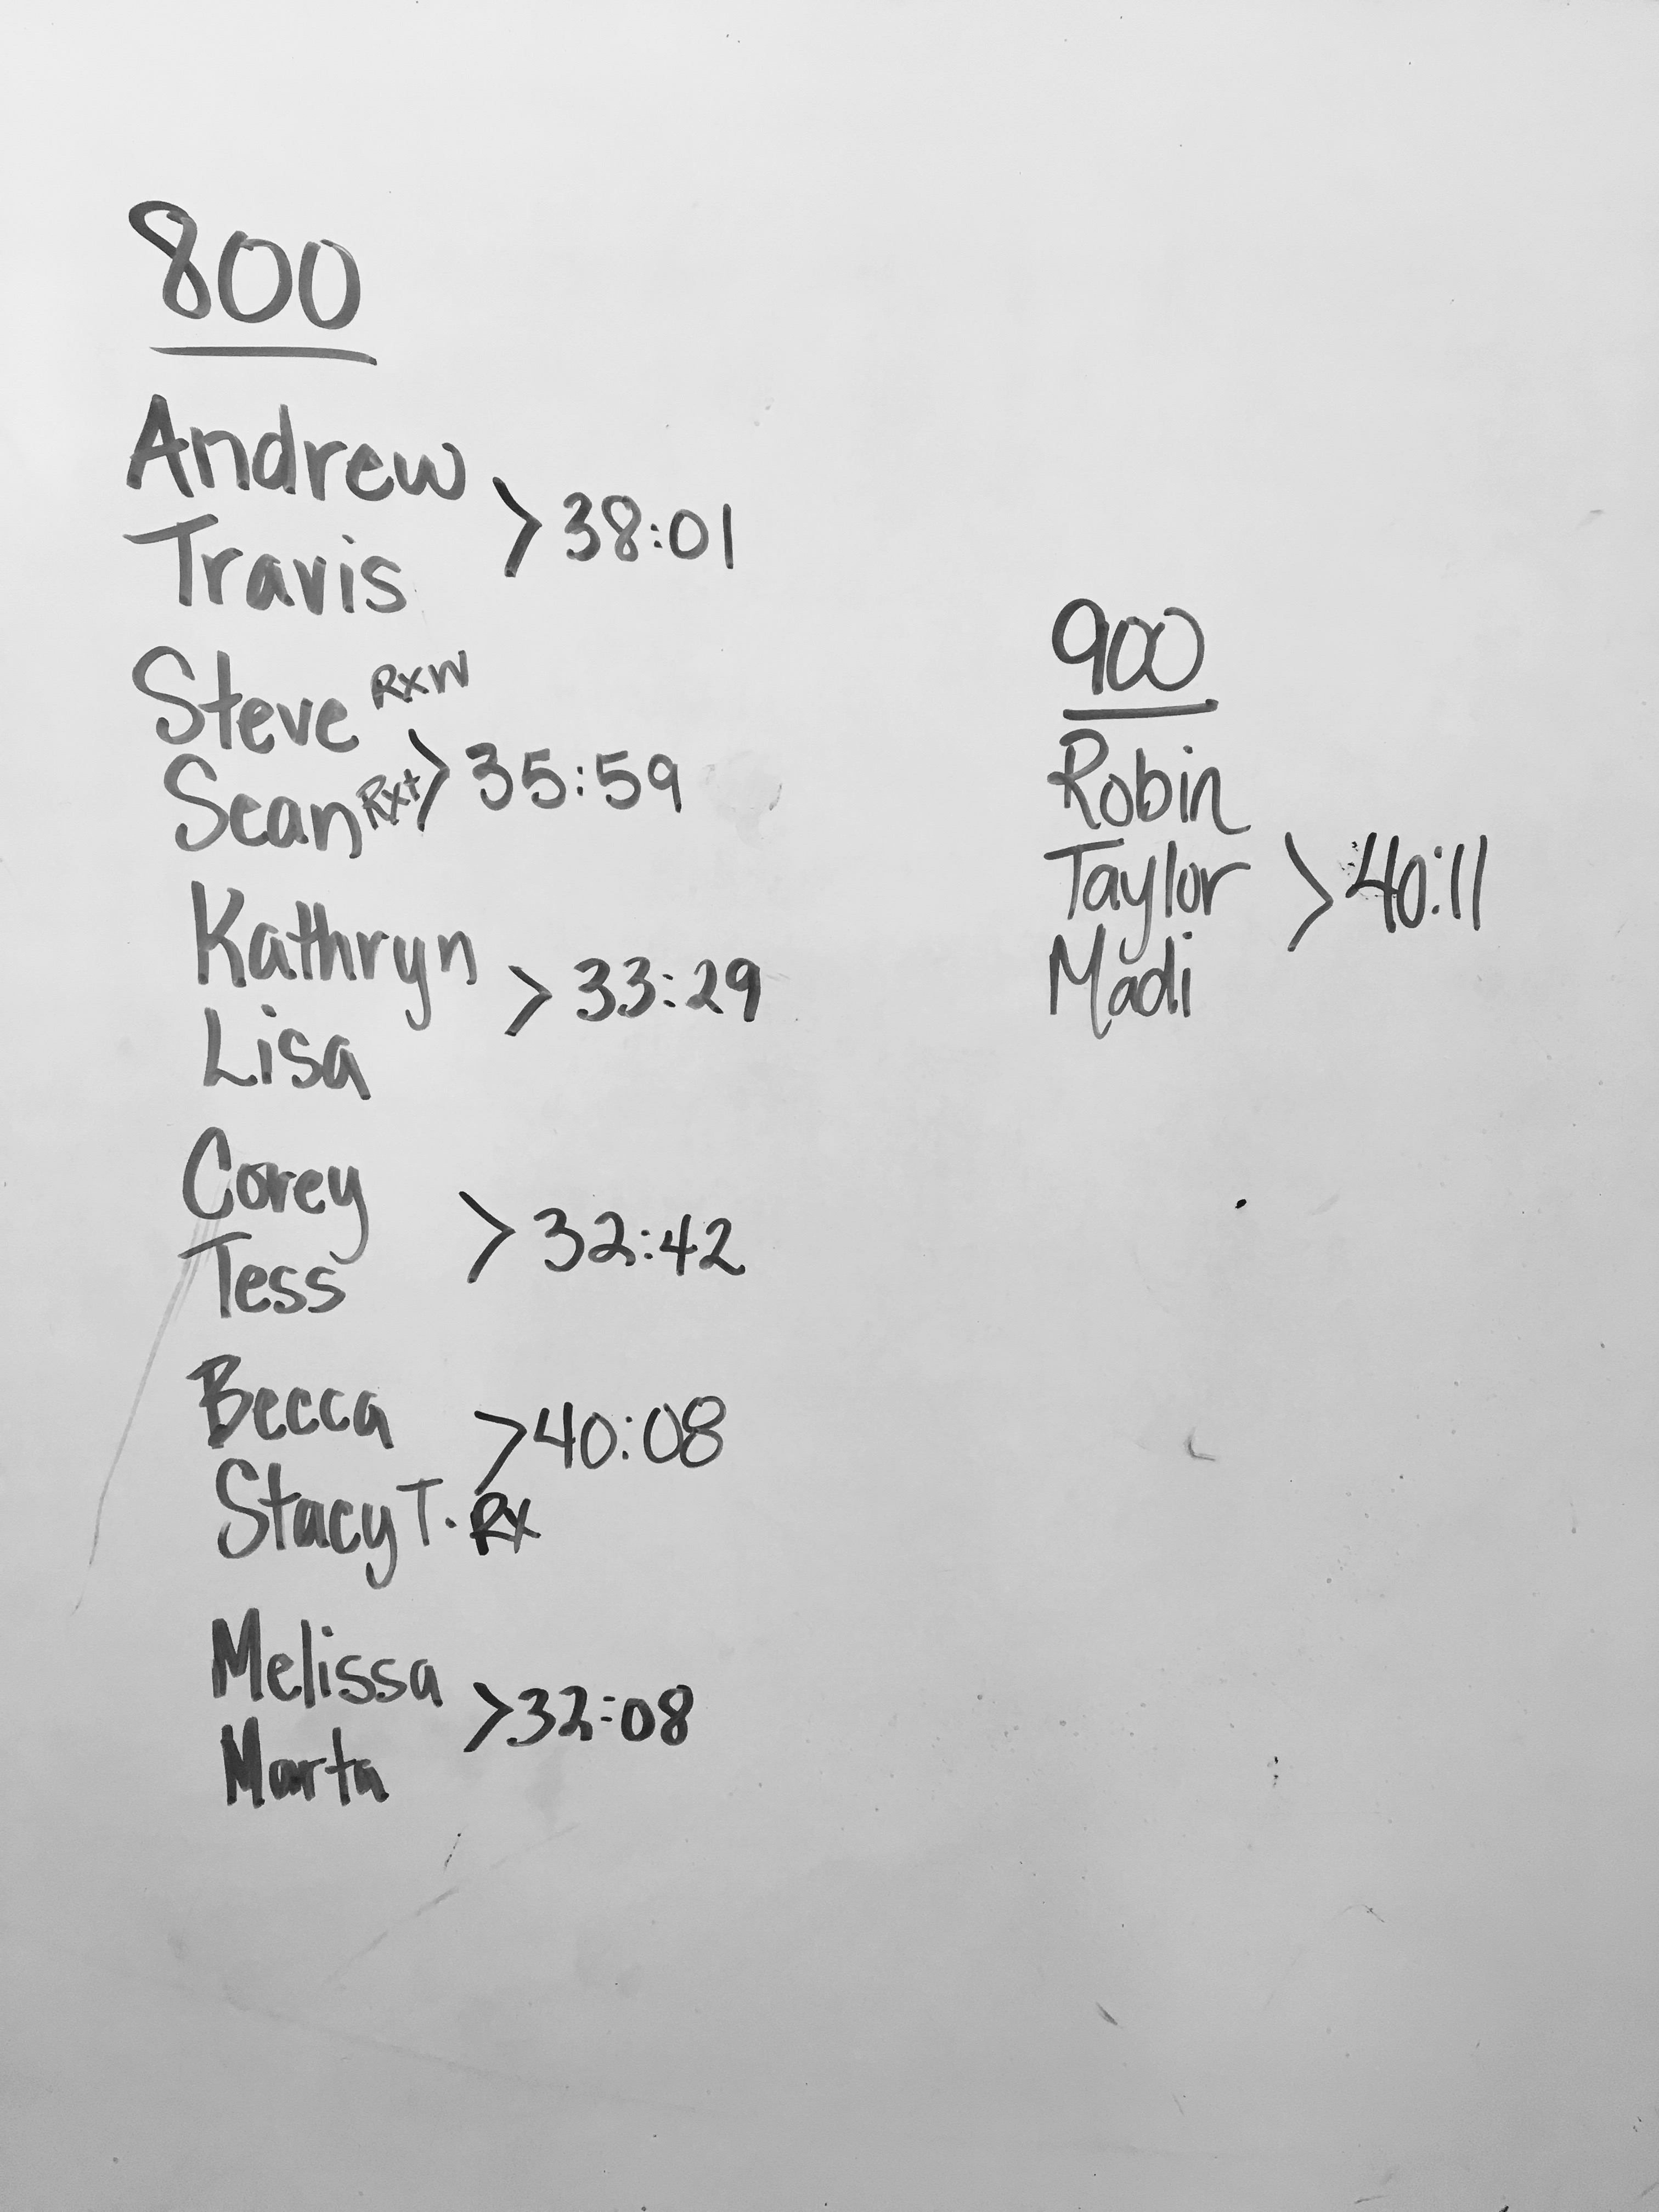 800
Andrew
> 38:01
Travis
Steve RXW
Sean RX+ > 35:59
Kathryn
> 33:29
Lisa
Corey
> 32:42
Tess
Becca
> 40:08
Stacy T. RX
Melissa
> 32:08
Marta
900
Robin
Taylor > 40:11
Madi